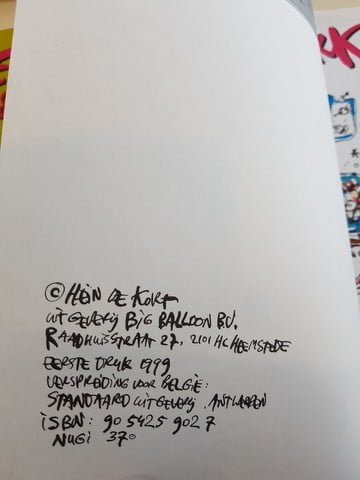 © HEIN DE KORT
UITGEVERIJ BIG BALLOON BV,
RAADHUISSTRAAT 27, 2101 HC HEEMSTEDE
EERSTE DRUK 1999
VERSPREIDING VOOR BELGIË:
STANDAARD UITGEVERIJ, ANTWERPEN
ISBN: 90 5425 902 7
NUGI 370
RK